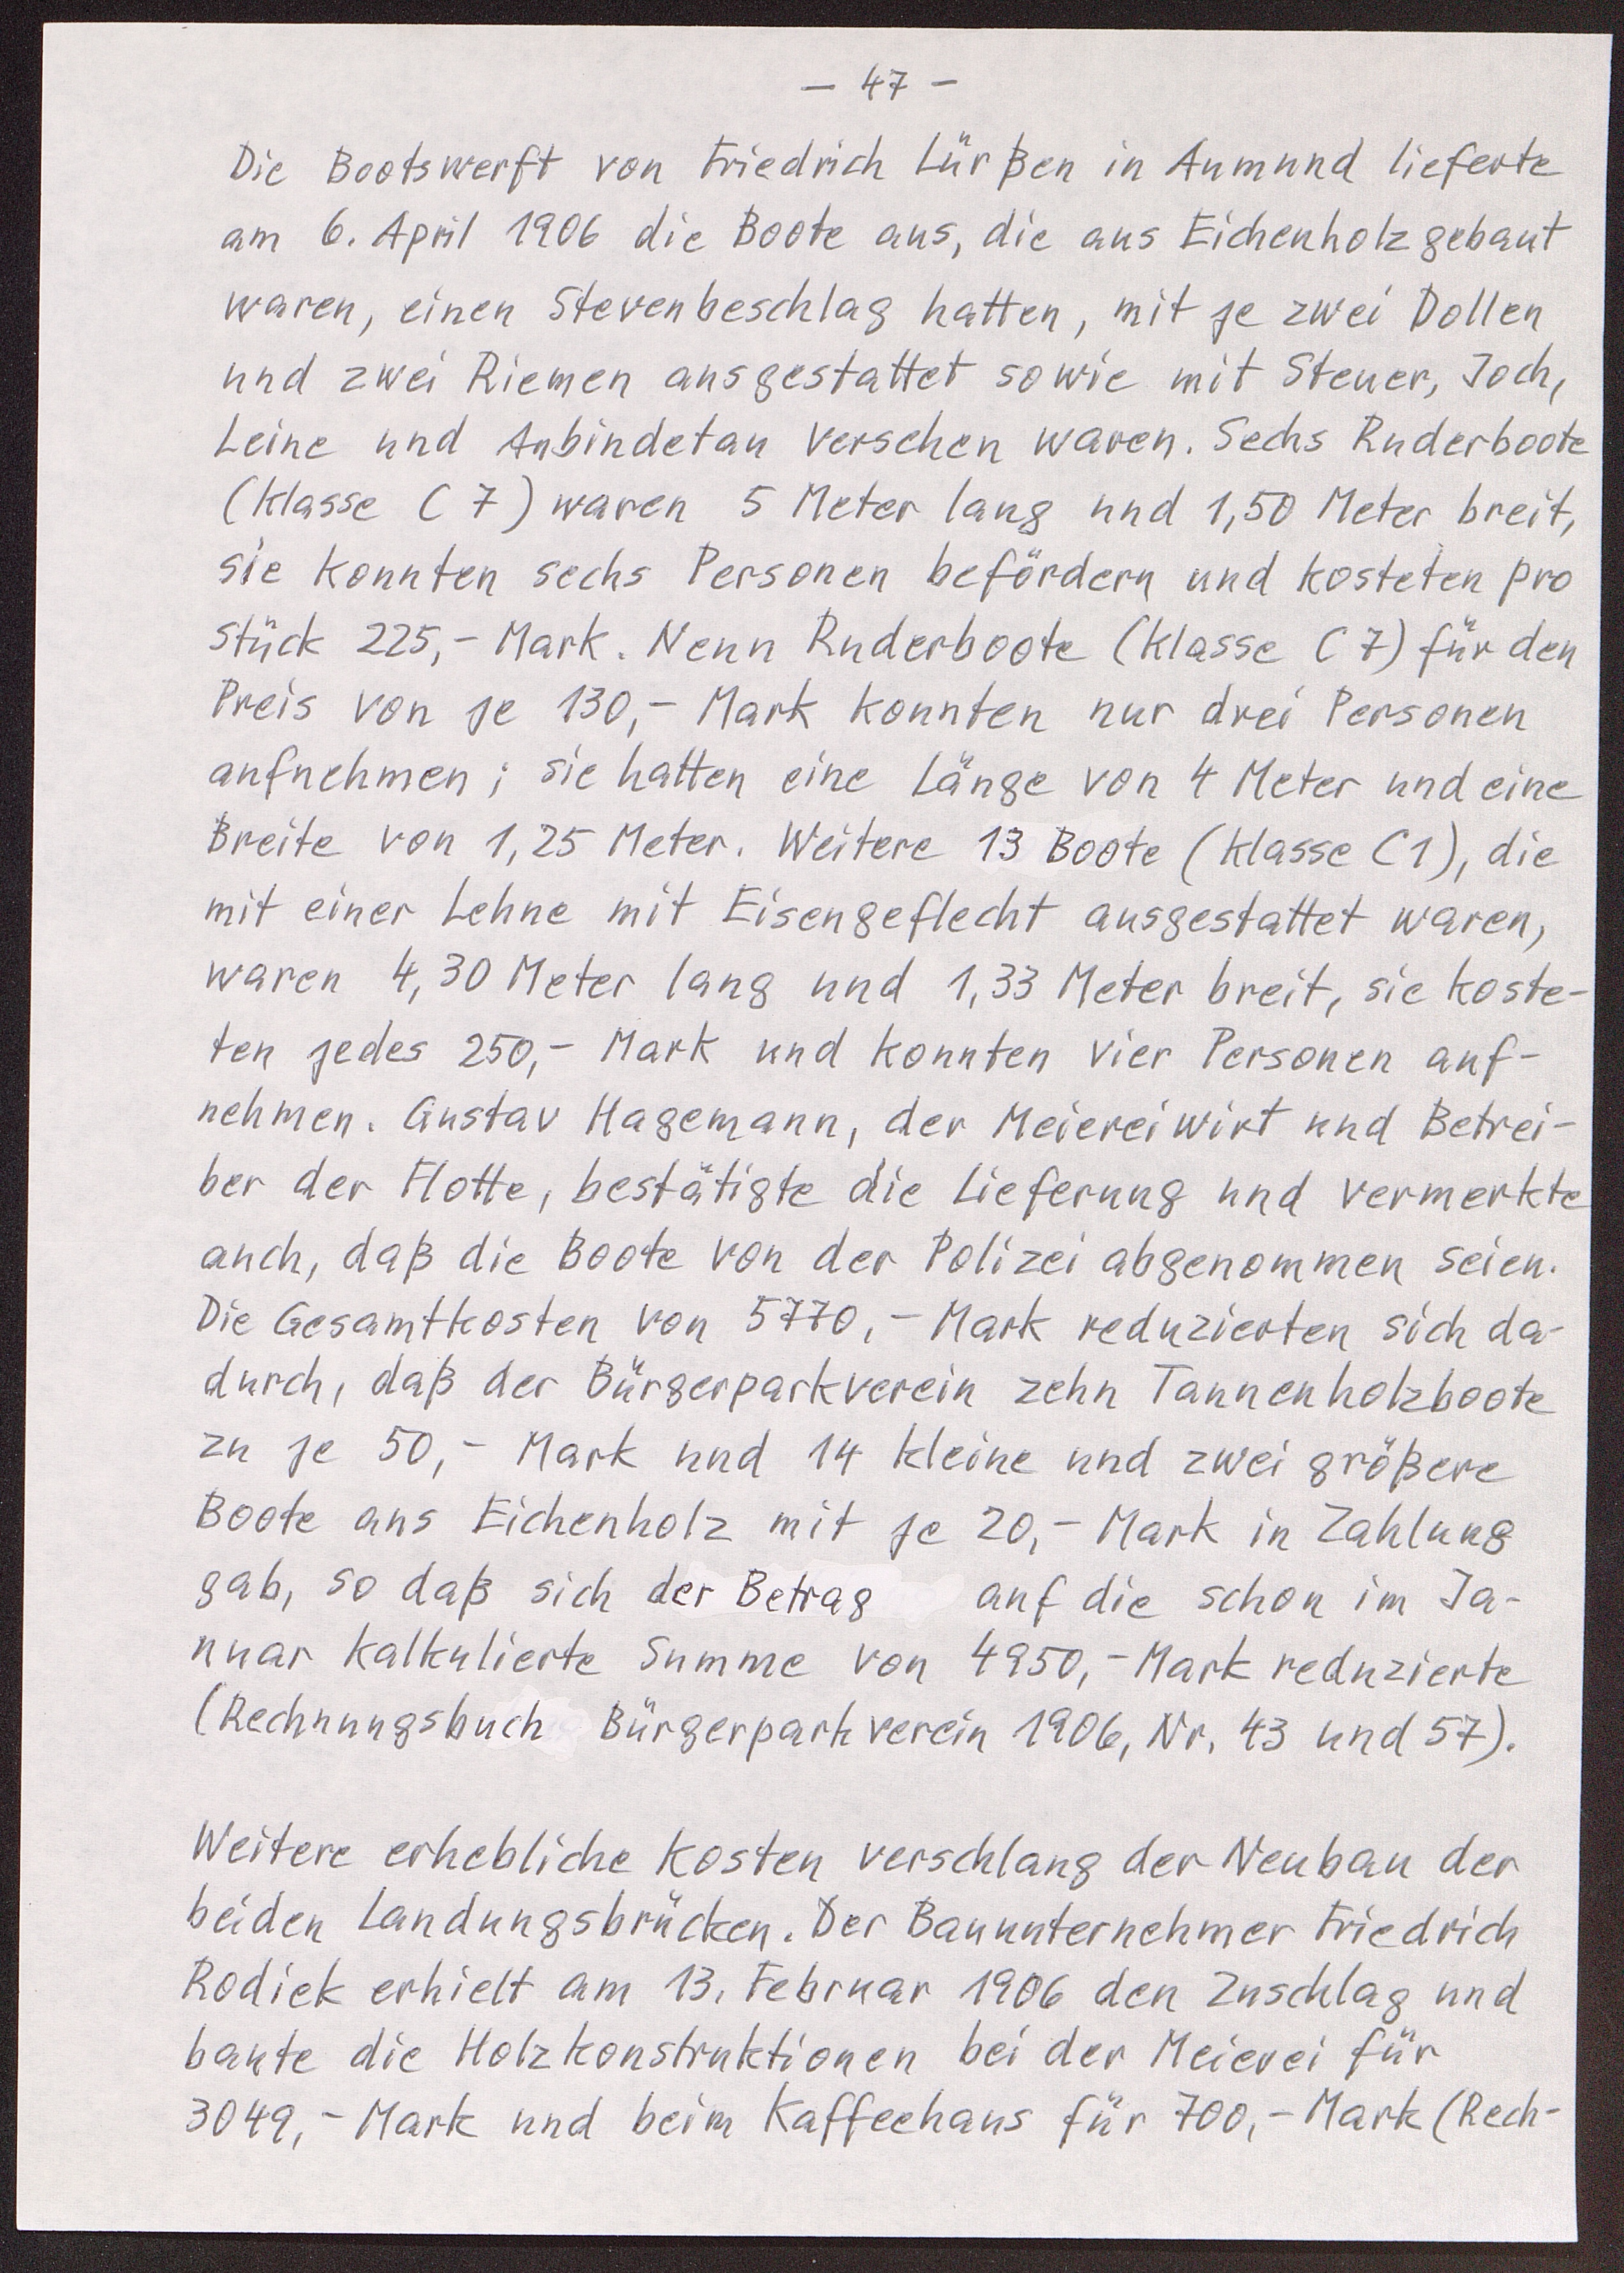 – 47 –
Die Bootswerft von Friedrich Lürßen in Aumund lieferte
am 6. April 1906 die Boote aus, die aus Eichenholz gebaut
waren, einen Stevenbeschlag hatten, mit je zwei Dollen
und zwei Riemen ausgestattet sowie mit Steuer, Joch,
Leine und Anbindetau versehen waren. Sechs Ruderboote
(Klasse C 7) waren 5 Meter lang und 1,50 Meter breit,
sie konnten sechs Personen befördern und kosteten pro
Stück 225,- Mark. Neun Ruderboote (Klasse C 7) für den
Preis von je 130,- Mark konnten nur drei Personen
aufnehmen; sie hatten eine Länge von 4 Meter und eine
Breite von 1,25 Meter. Weitere 13 Boote (Klasse C1), die
mit einer Lehne mit Eisengeflecht ausgestattet waren,
waren 4,30 Meter lang und 1,33 Meter breit, sie koste-
ten jedes 250,- Mark und konnten vier Personen auf-
nehmen. Gustav Hagemann, der Meiereiwirt und Betrei-
ber der Flotte, bestätigte die Lieferung und vermerkte
auch, daß die Boote von der Polizei abgenommen seien.
Die Gesamtkosten von 5770,- Mark reduzierten sich da-
durch, daß der Bürgerparkverein zehn Tannenholzboote
zu je 50,- Mark und 14 kleine und zwei größere
Boote aus Eichenholz mit je 20,- Mark in Zahlung
gab, so daß sich der Betrag auf die schon im Ja-
nuar kalkulierte Summe von 4950,- Mark reduzierte
(Rechnungsbuch Bürgerparkverein 1906, Nr. 43 und 57).

Weitere erhebliche Kosten verschlang der Neubau der
beiden Landungsbrücken. Der Bauunternehmer Friedrich
Rodiek erhielt am 13. Februar 1906 den Zuschlag und
baute die Holzkonstruktionen bei der Meierei für
3049,- Mark und beim Kaffeehaus für 700,- Mark (Rech-